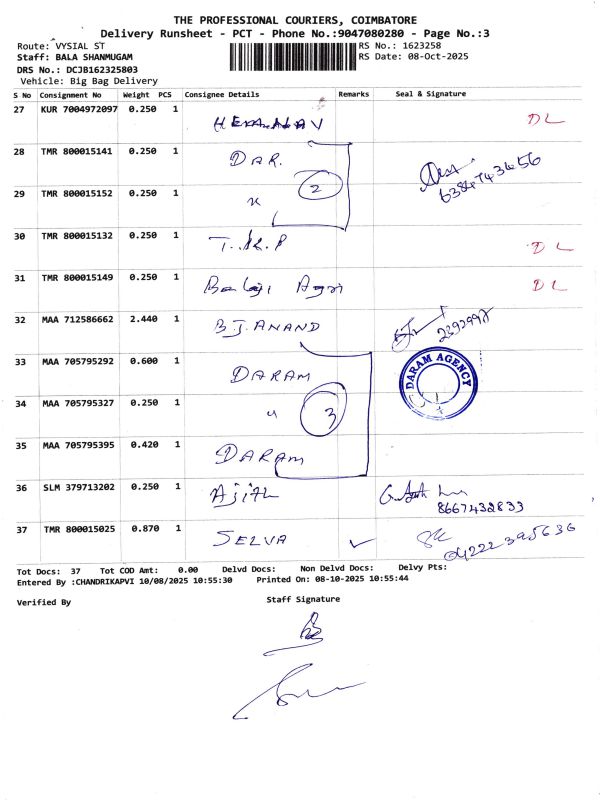 THE PROFESSIONAL COURIERS, COIMBATORE
Delivery Runsheet - PCT - Phone No.:9047080280 - Page No.:3
Route: VYSIAL ST RS No.: 1623258
Staff: BALA SHANMUGAM RS Date: 08-Oct-2025
DRS No.: DCJB162325803
Vehicle: Big Bag Delivery
S No Consignment No Weight PCS Consignee Details Remarks Seal & Signature
27 KUR 7004972097 0.250 1 DL
28 TMR 800015141 0.250 1 DAR.
2
6384743456
29 TMR 800015152 0.250 1 "
30 TMR 800015132 0.250 1 DL
31 TMR 800015149 0.250 1 Balaji Agri DL
32 MAA 712586662 2.440 1 B.J.ANAND 2392997
33 MAA 705795292 0.600 1 DARAM
DARAM AGENCY
34 MAA 705795327 0.250 1 " 3
35 MAA 705795395 0.420 1 DARAM
36 SLM 379713202 0.250 1 Ajith
8667432833
37 TMR 800015025 0.870 1 SELVA ✓ 04222395636
Tot Docs: 37 Tot COD Amt: 0.00 Delvd Docs: Non Delvd Docs: Delvy Pts:
Entered By :CHANDRIKAPVI 10/08/2025 10:55:30 Printed On: 08-10-2025 10:55:44
Verified By Staff Signature